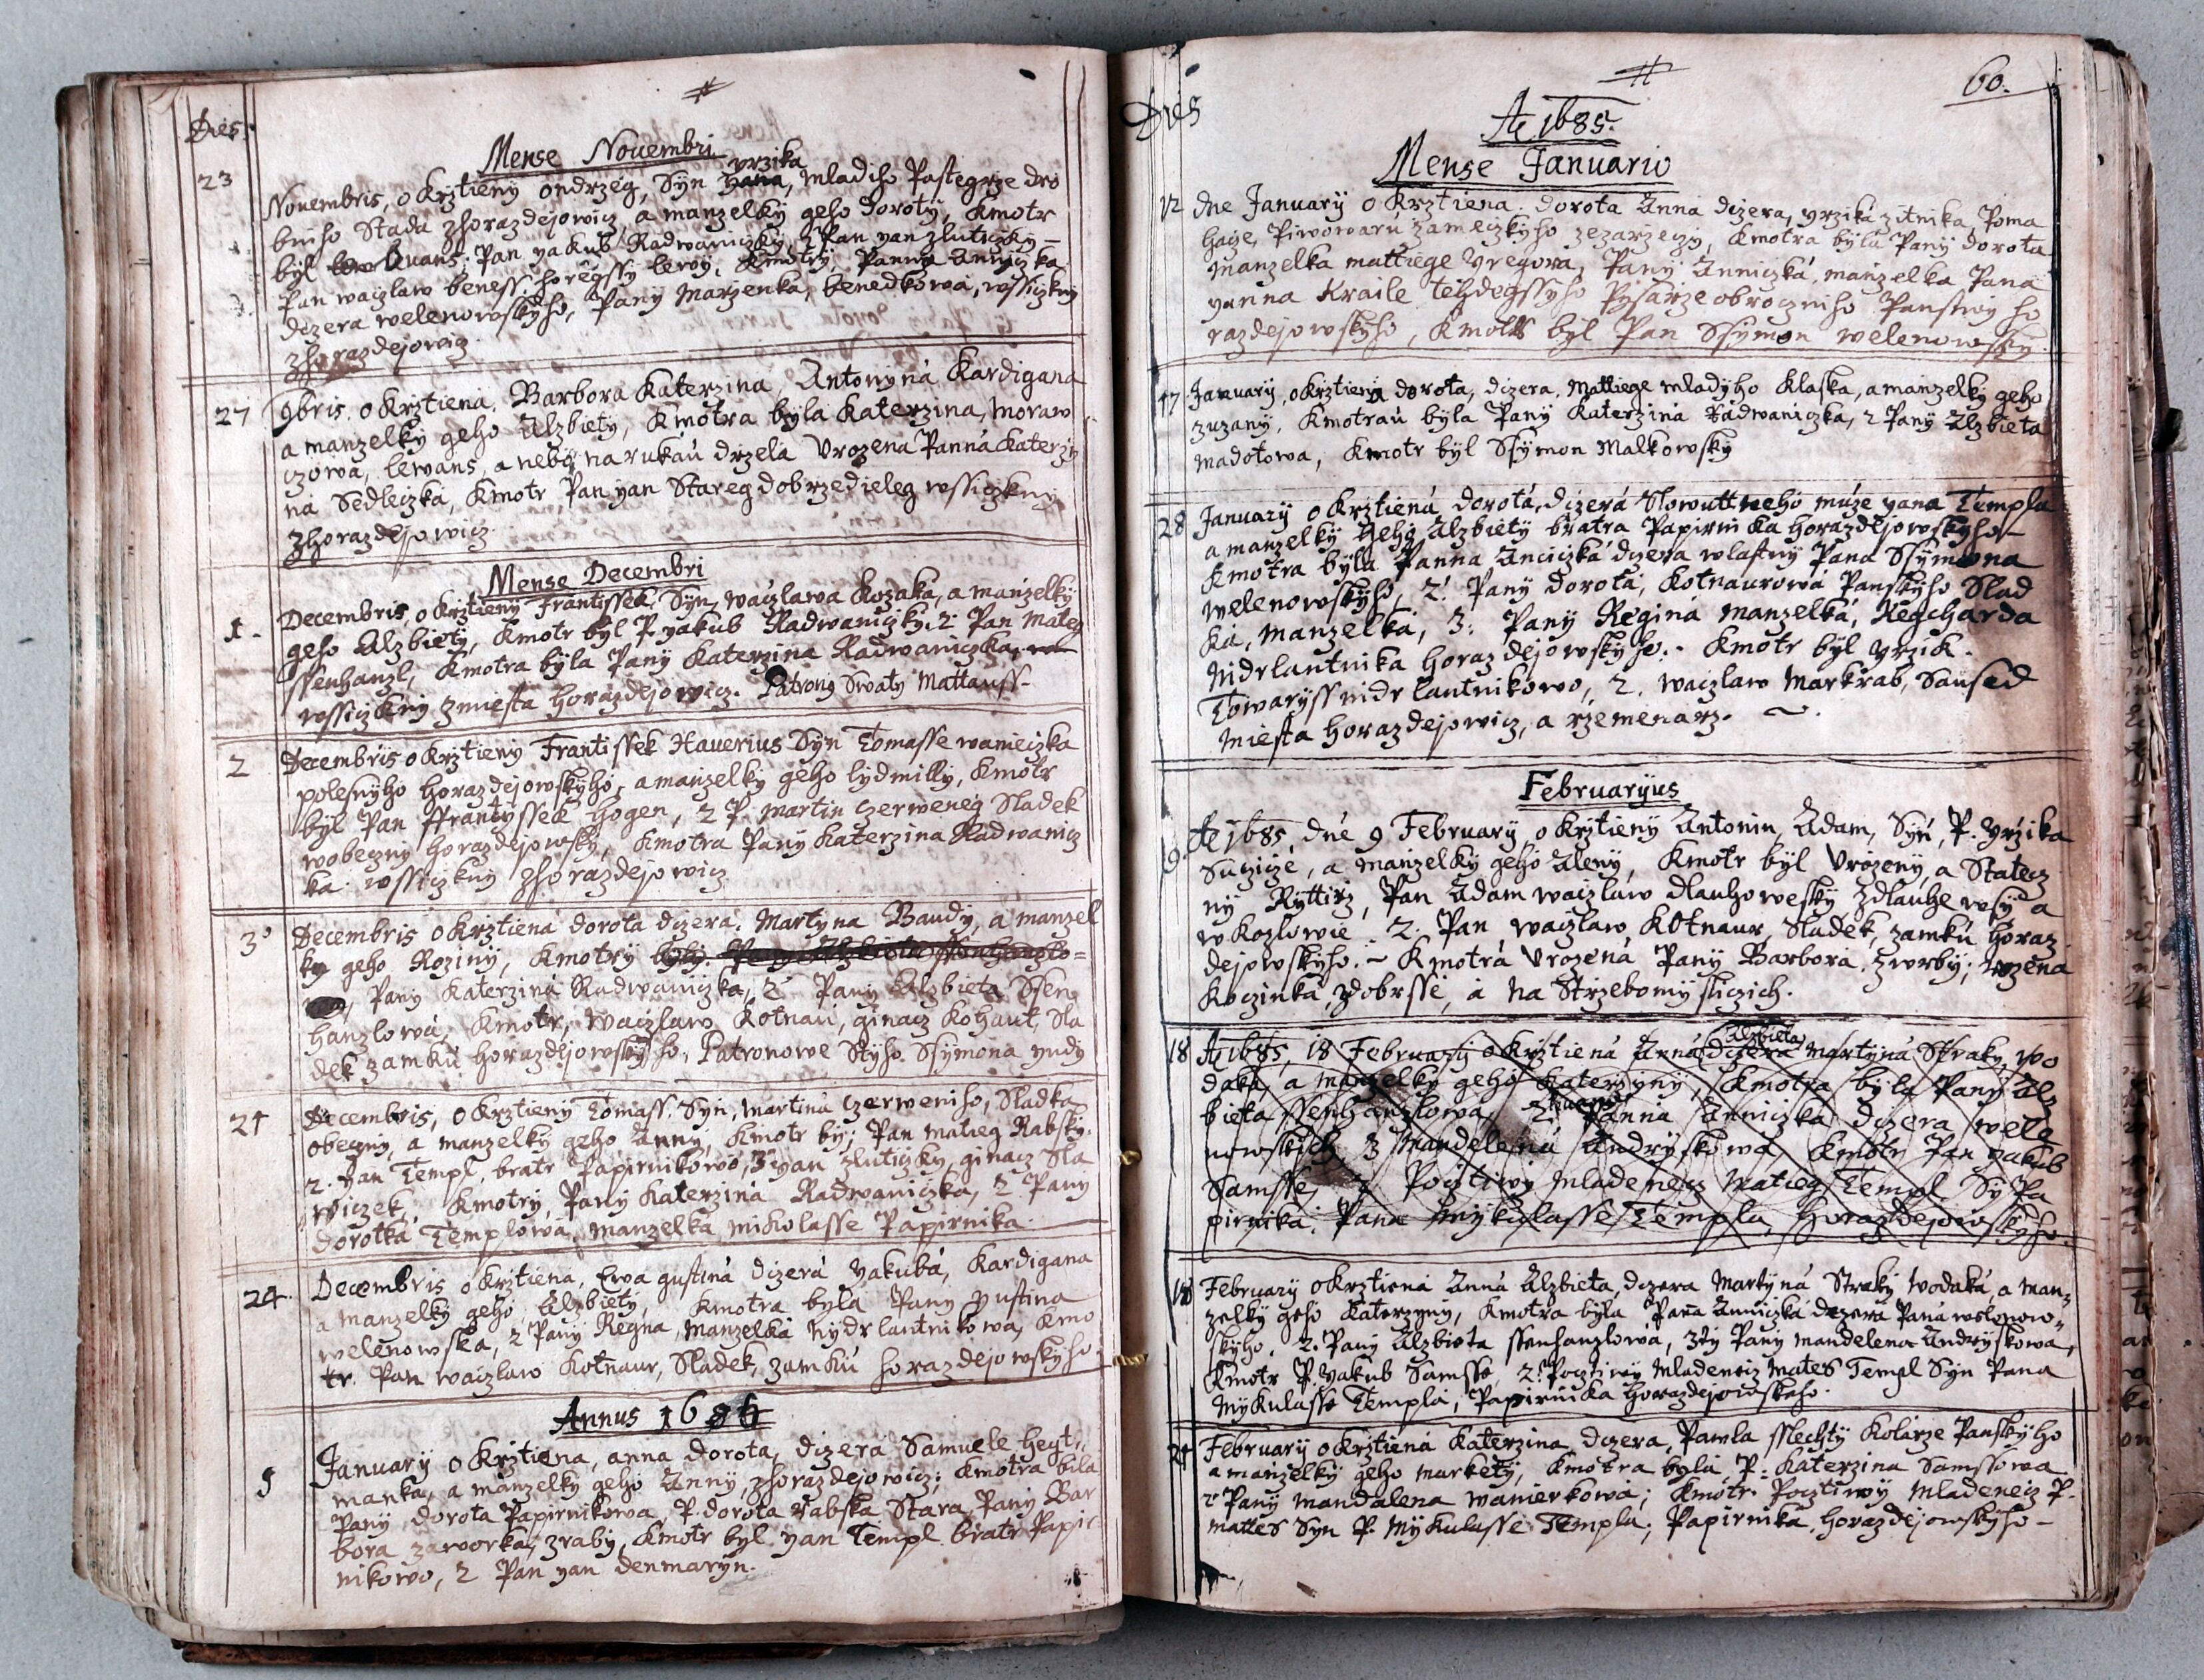 Dies
Mense Nouembri
23
yrzika
Nouembris, o Krztieny ondrzeg, Syn hana, mladiho Pastegrze dro
bniho Stada zhorazdejowicz, a manzelky geho doroty, Kmotr
był Leuans. Pan yakub Radwaniczky, 2 Pan yan zluticzky
Pan waczlaw beness horegssy Kmotry Panna Anniczka
dczera welenowskyho, Pany Marzenka, benedkowa, wssiczkny
zhorazdejowicz.
27
9bris, o Krztiena, Barbora Katerzina, Antonyna Kardigana
a manzelky geho Alzbiety, Kmotra byla Katerzina, moraw
czowa, lewans, a neby na rukau drzela Vrozena Panna Katerzy
na Sedleczka, Kmotr Pan yan Stareg dobrzedieleg wssiczkny
zhorazdejowicz.
Mense Decembri
1.
Decembris, o Krztieny Frantissek, Syn waczlawa Kozaka, a manzelky
geho Alzbiety, Kmotr byl P. yakub Radwaniczky, 2 Pan Mateg
ssenhanzl, Kmotra byla Pany Katerzina Radwaniczka,
wssiczkny zmiesta horazdejowicz. Patrony Swaty Mattauss.
2
Decembris o Krztieny Frantissek Xauerius Syn Tomasse waniczka
polesnyho horazdejowskyho, a manzelky geho lydmilly, Kmotr
byl Pan ffrantyssek hogen, 2 P. Martin czerweneg Sladek
wobeczny horazdejowsky, Kmotra Pany Katerzina Radwanicz
ka. wssiczkny zhorazdejowicz
3
Decembris o Krztiena dorota dczera, Martyna Baudy, a manzel
ky geho Roziny, Kmotry byly
Pany Katerzina Radwaniczka, 2 Pany Alzbieta Ssen
hanzlowa, Kmotr, Waczlaw Kotnau, ginacz Kohaut, Sla
dek zamku horazdejowskyho, Patronowe Styho Ssymona yudy
21
Decembris, o Krztieny Tomass, Syn, Martina czerweniho, Sladka
obeczny, a manzelky geho Anny, Kmotr by; Pan matieg Rabsky.
2. yan Templ, bratr Papirnikowo, 3 yan zluticzky, ginacz Sla
wiczek, Kmotry, Pany Katerzina Radwaniczka, 2 Pany
dorotka Templowa, manzelka mikolasse Papirnika.
24.
Decembris o Krztiena, Ewa gustina dczera yakuba, Kardigana
a manzelky geho, Alzbiety, Kmotra byla Pany yustina
welenowska, 2 Pany Regna, manzelka nydrlantnikowa, Kmo
tr. Pan waczlaw Kotnaur, Sladek, zamku horazdejowskyho
Annus 1684
9
January o Krztiena, anna dorota, dczera Samuele heyt,
manka, a manzelky geho Anny, zhorazdejowicz; Kmotra bila
Pany dorota Papirnikowa, P. dorota rabska Stara, Pany Bar
bora zaworka, zraby, Kmotr byl yan Templ bratr Papir
nikowo, 2 Pan yan denmaryn.
60.
Dies
Ao 1685.
Mense Januario
12
dne January o Krztiena. dorota Anna dczera, yrzika zitnika, Poma
hacze, Piwowaru zameczkyho zezarzeczy, Kmotra byla Pany dorota
manzelka mattiege yregora, Pany Anniczka, manzelka Pana
yanna Kraile tehdegssyho Pysarze obroczniho Panstwy ho
razdejowskyho, Kmotr byl Pan Ssymon welenowsky.
17
January, o Krztiena dorota, dczera, Mattiege mladyho Klaska, a manzelky geho
zuzany, Kmotrau byla Pany Katerzina Radwaniczka, 2 Pany Alzbieta
madotowa, Kmotr byl Ssymon Malkowsky
28
January o Krztiena dorota, dczera Slowuttneho muze yana Templa
a manzelky geho Alzbiety bratra Papirnika horazdejowskyho
Kmotra byla Panna Anciczka dczera wlastny Pana Ssymona
welenowskyho, 2. Pany dorota, Kotnaurowa Panskyho Slad
ka, manzelka, 3. Pany Regina manzelka, Regcharda
nidrlantnika horazdejowskyho. Kmotr byl yrzik.
Towaryss nidrlantnikowo, 2. waczlaw Markrab, Saused
miesta horazdejowicz, a rzemenarz.
Februaryus
9
Ao 1685, dne 9 February, o Krztieny Antonin, Adam, Syn, P. yrzika
Suczicze, a manzelky geho Aleny, Kmotr byl Vrozeny, a Statecz
ny Ryttirz, Pan Adam waczlaw dlauhowesky zdlauhe wsy a
w Kozlowie. 2. Pan waczlaw Kotnaur, Sladek, zamku horaz
dejowskyho. Kmotra Vrozena Pany Barbora. zwrby; rozena
Koczinka, zdobrsse, a na Strzebomysliczich.
18
Alzbieta
Ao 1685, 18 February o Krztiena Anna dczera Martyna Straky, wo
daka, a manzelky geho Katerzyny, Kmotra byla Pany Alz
bieta ssenhanzlowa, 2 Panna Anniczka dczera wele
nowskych 3 Mandelena Andryskowa Kmotr Pan yakub
Samsse, 2 Pocztiwy mladenecz Matieg Templ Sy Pa
pirnika. Pana Mykulasse Templa, horazdejowskyho.
18
February o Krztiena Anna Alzbieta, dczera Martyna Straky wodaka, a man
zelky geho Katerzyny, Kmotra byla Pana Anniczka dczera Pana welenow
skyho, 2. Pany Alzbieta ssenhanzlowa, 3ty Pany mandelena Andryskowa,
Kmotr P. yakub Samsse, 2. Pocztiwy Mladenecz Mates Templ Syn Pana
Mykulasse Templa, Papirnika horazdejowskeho.
24
February o Krztiena Katerzina dczera, Pawla sslechty Kolarze Panskyho
a manzelky geho markety, Kmotra byla P. Katerzina Samssowa
2 Pany mandalena wanierkowa; Kmotr Pocztiwy Mladenecz P.
mattes Syn P. Mykulasse Templa, Papirnika, horazdejowskyho